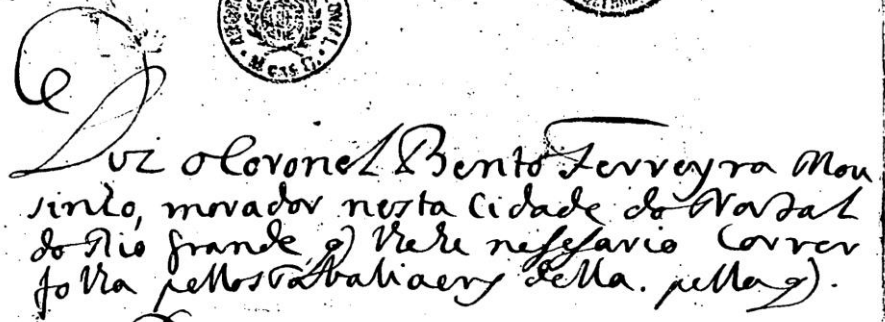 Diz o Coronel Bento Ferreyra Mou
sinho, morador nesta Cidade do Natal
do Rio grande, q) lhe he nessesario Correr
folha pellos tabaliaens della. pella q).